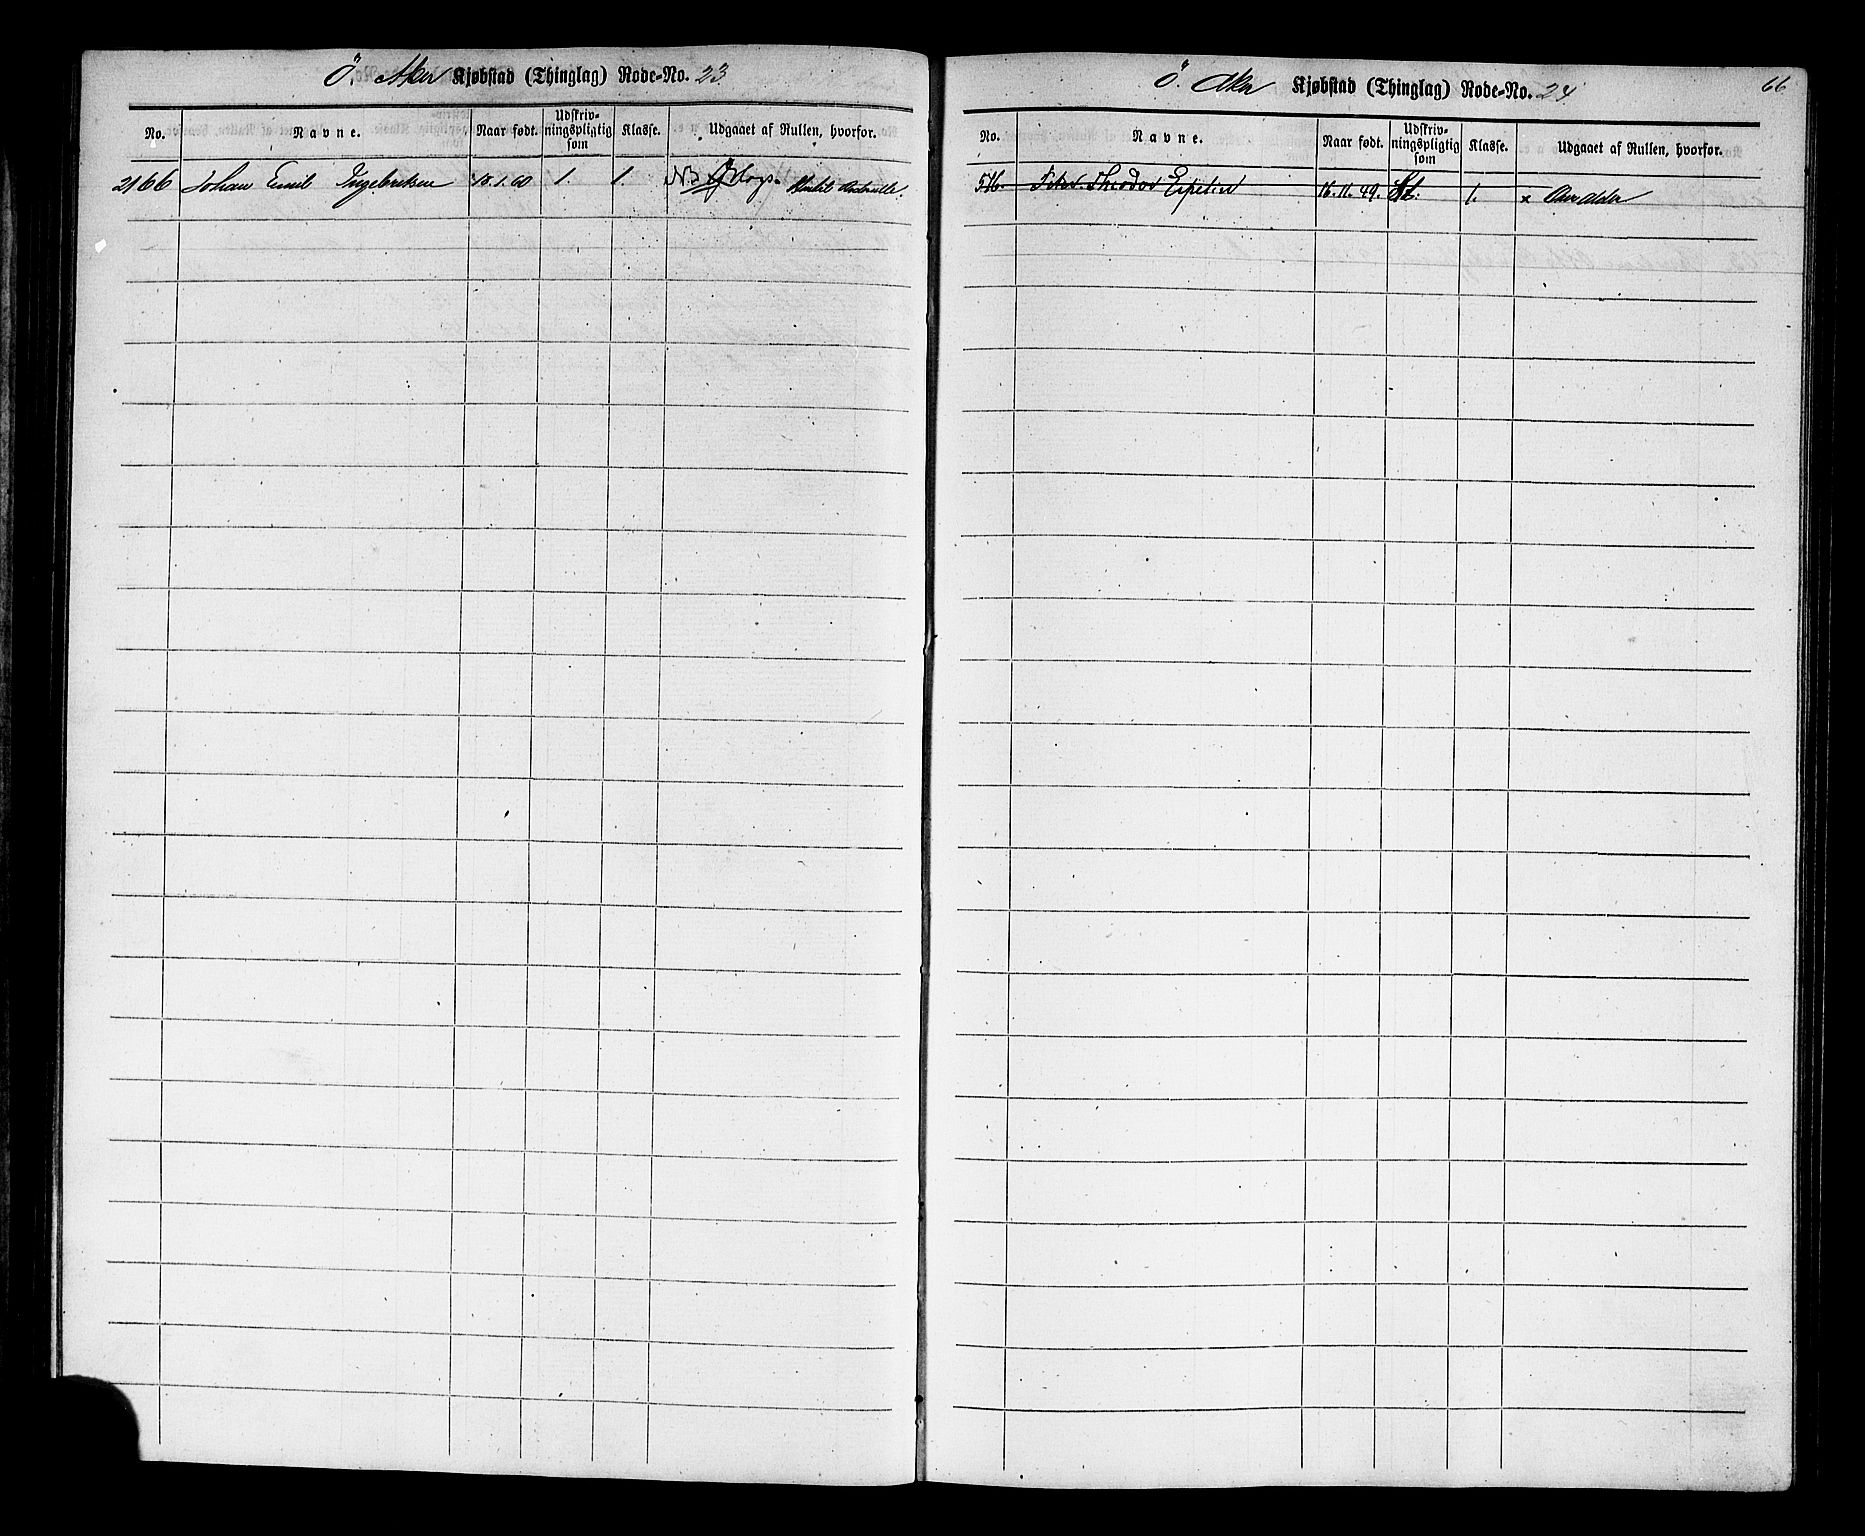 Ö. Aker Kjøbstad (Thinglag) Rode-No. 23
No. Navne. Naar født. Udskriv-ningspligtig som Klasse. Udgaaet af Rullen, hvorfor.
2166 Johan Emil Ingebretsen 13.1.60 1. 1. NB
Ö. Aker Kjøbstad (Thinglag) Rode-No. 24
66
No. Navne. Naar født. Udskriv-ningspligtig som Klasse. Udgaaet af Rullen, hvorfor.
516. Theodor Espelin 16.11.49. St. 1. x Over Alder